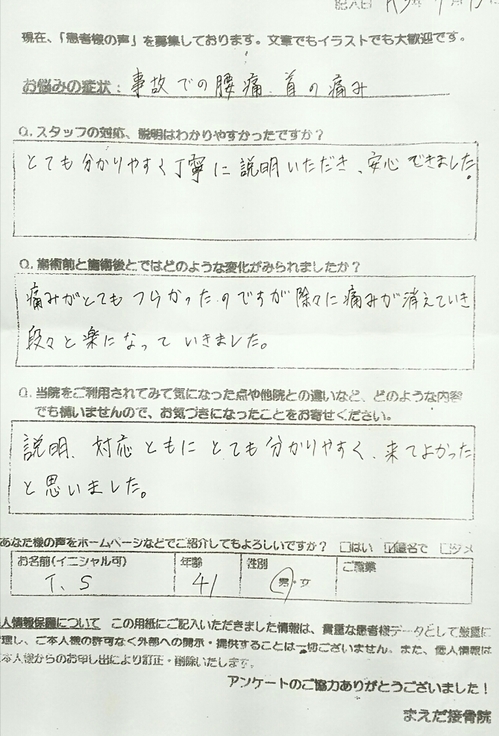 記入日 R3年 9月15
現在、「患者様の声」を募集しております。文章でもイラストでも大歓迎です。
お悩みの症状: 事故での腰痛、首の痛み
Q. スタッフの対応、説明はわかりやすかったですか?
とても分かりやすく丁寧に説明いただき、安心できました。
Q. 施術前と施術後とではどのような変化がみられましたか?
痛みがとてもつらかったのですが除々に痛みが消えていき
段々と楽になっていきました。
Q. 当院をご利用されてみて気になった点や他院との違いなど、どのような内容
でも構いませんので、お気づきになったことをお寄せください。
説明、対応ともにとても分かりやすく、来てよかった
と思いました。
あなた様の声をホームページなどでご紹介してもよろしいですか? □はい ☑匿名で □ダメ
お名前(イニシャル可) 年齢 性別 ご職業
T. S 41 男・女
人情報保護について この用紙にご記入いただきました情報は、貴重な患者様データとして厳重に
理し、ご本人様の許可なく外部への開示・提供することは一切ございません。また、個人情報は
本人様からのお申し出により訂正・削除いたします。
アンケートのご協力ありがとうございました!
まえだ接骨院